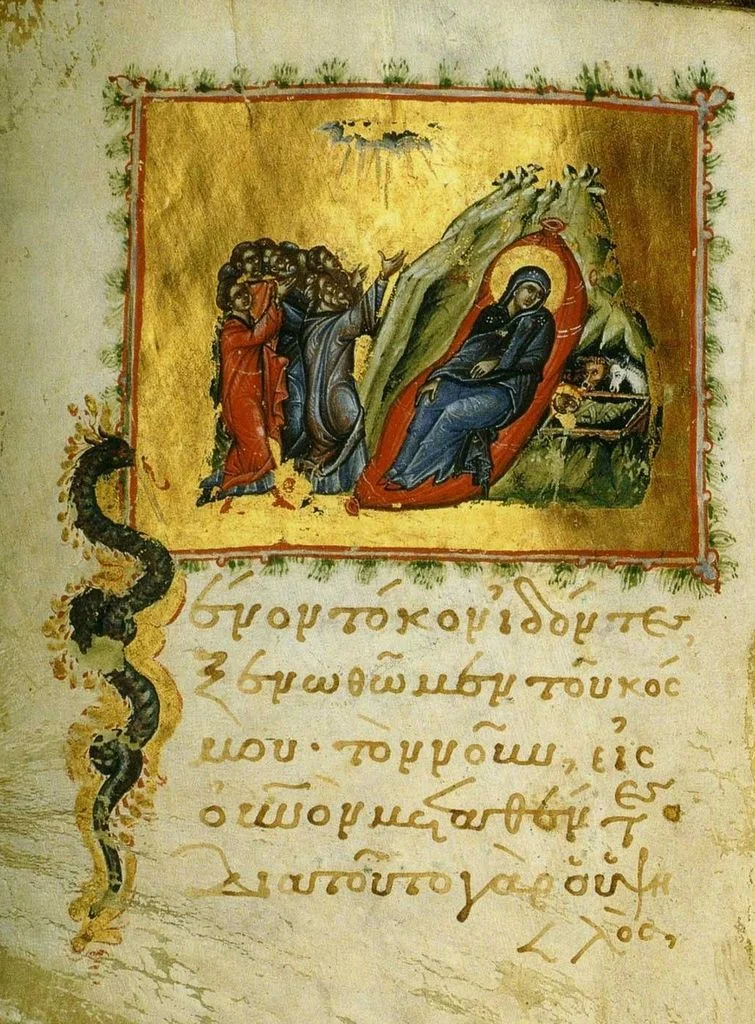 Ξένον τόκον ἰδόντες,
ξενωθῶμεν τοῦ κόσ
μου· τὸν νοῦν, εἰς
οὐ̅νὸν μεταθέντες·
διατοῦτο γὰρ ὁ ὑψη
λὸς,